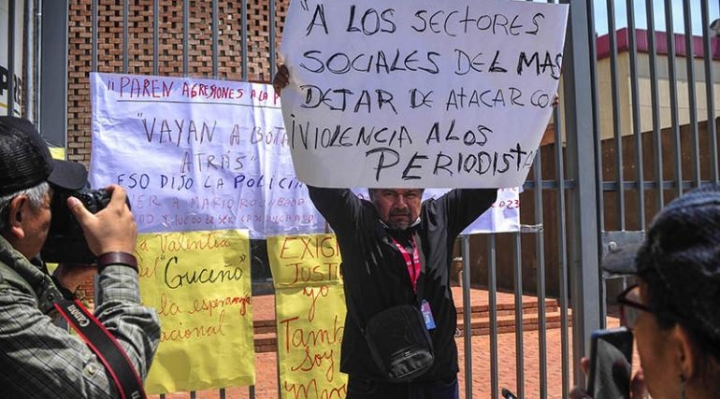 "A LOS SECTORES
SOCIALES DEL MAS
DEJAR DE ATACAR CO
¡VIOLENCIA A LOS
PERIODISTA
¡¡PAREN AGRESIONES A LA P
"VAYAN A BOTA
ATRÁS"
ESO DIJO LA POLICIA
A MARIO
2023
La Valentia
del "Guceño"
la esperanza
nacional
EXIGI
JUSTI
yo
Tamb
Soy
Mar
Canon